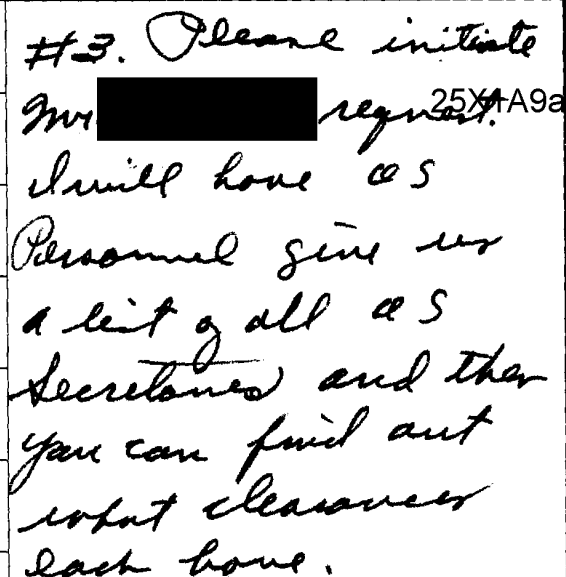 #3. Please initiate
Mr. request. 25X1A9a
I will have OS
Personnel give us
a list of all OS
Secretaries and then
you can find out
what clearances
each have.